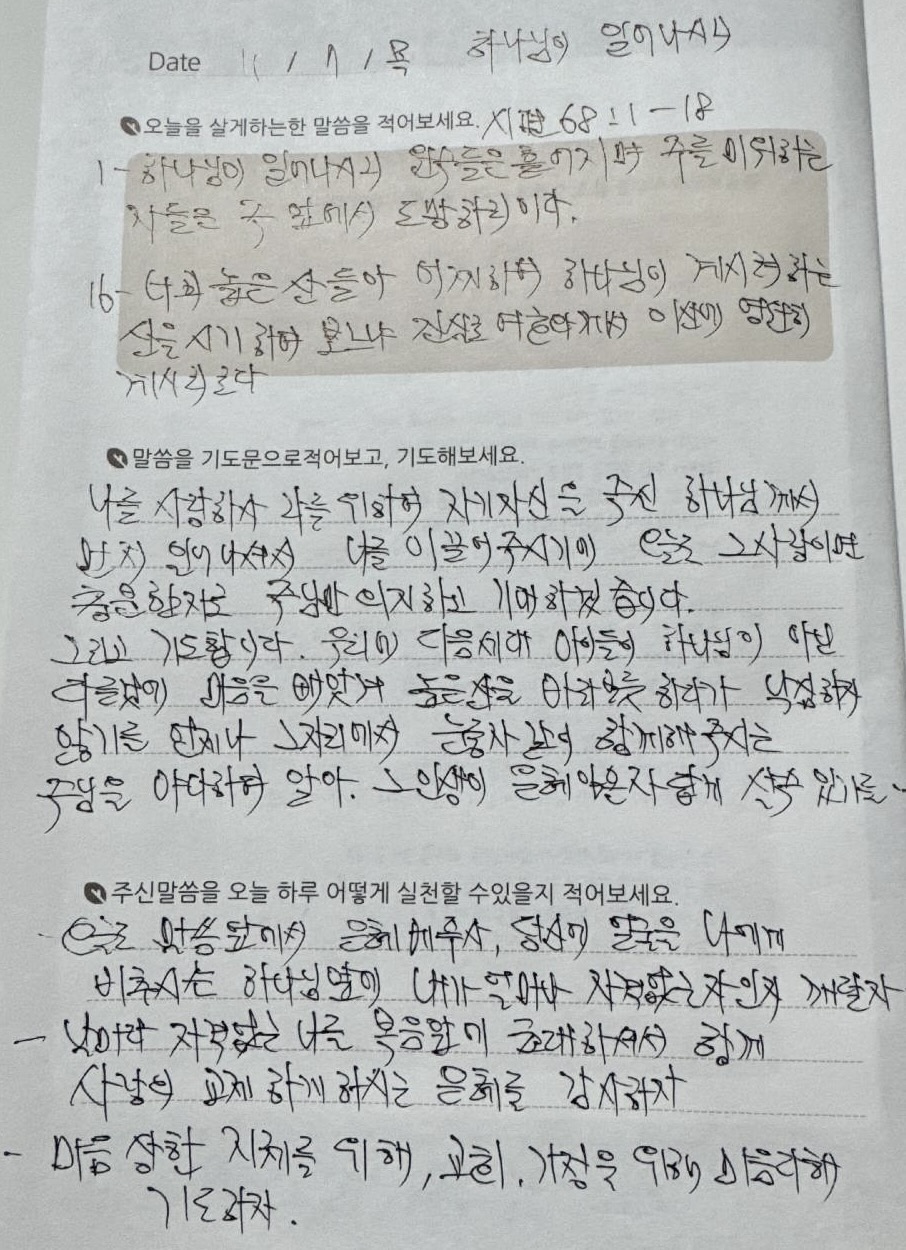 Date 11 / 7 / 목 하나님이 일어나시니
오늘을 살게하는한 말씀을 적어보세요. 시편 68:1-18
1- 하나님이 일어나시니 원수들은 흩어지며 주를 미워하는
자들은 주 앞에서 도망하리이다.
16- 너희 높은 산들아 어찌하여 하나님이 계시려하는
산을 시기하여 보느냐 진실로 여호와께서 이산에 영원히
계시리로다
말씀을 기도문으로적어보고, 기도해보세요.
나를 사랑하사 나를 위하여 자기자신을 주신 하나님께서
먼저 일어나셔서 나를 이끌어주시기에 오늘도 그사랑이면
충분한자로 주님만 의지하고 기뻐하겠습니다.
그리고 기도합니다. 우리에 다음세대 아이들이 하나님이 아닌
다른것에 마음을 빼앗겨 높은산을 바라보듯 하다가 낙심하지
않기를 언제나 그자리에서 눈동자 같이 함께해주시는
주님을 알아. 그인생이 은혜입은자 답게 살수 있기를..
주신말씀을 오늘 하루 어떻게 실천할 수있을지 적어보세요.
- 오늘도 말씀앞에서 은혜베푸사, 당신에 얼굴을 나에게
비추시는 하나님앞에 내가 얼마나 자격없는자인지 깨닫자
- 날마다 자격없는 나를 복음앞에 초대하셔서 함께
사랑의 교제하게 하시는 은혜를 감사하자
- 마음 상한 지체를 위해, 교회, 가정을 위해 마음다해
기도하자.